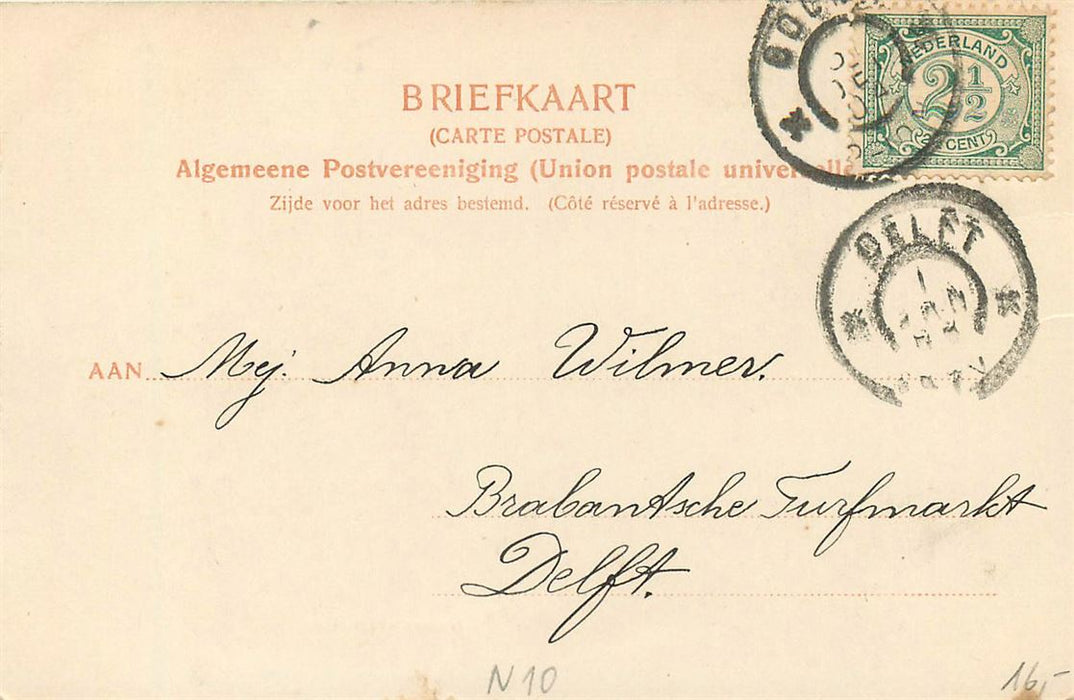 BRIEFKAART
(CARTE POSTALE)
Algemeene Postvereeniging (Union postale universelle
Zijde voor het adres bestemd. (Côté réservé à l'adresse.)
NEDERLAND
2½
CENT
DELFT
AAN Mej. Anna Wilmer.
Brabantsche Turfmarkt
Delft.
N10
16,-